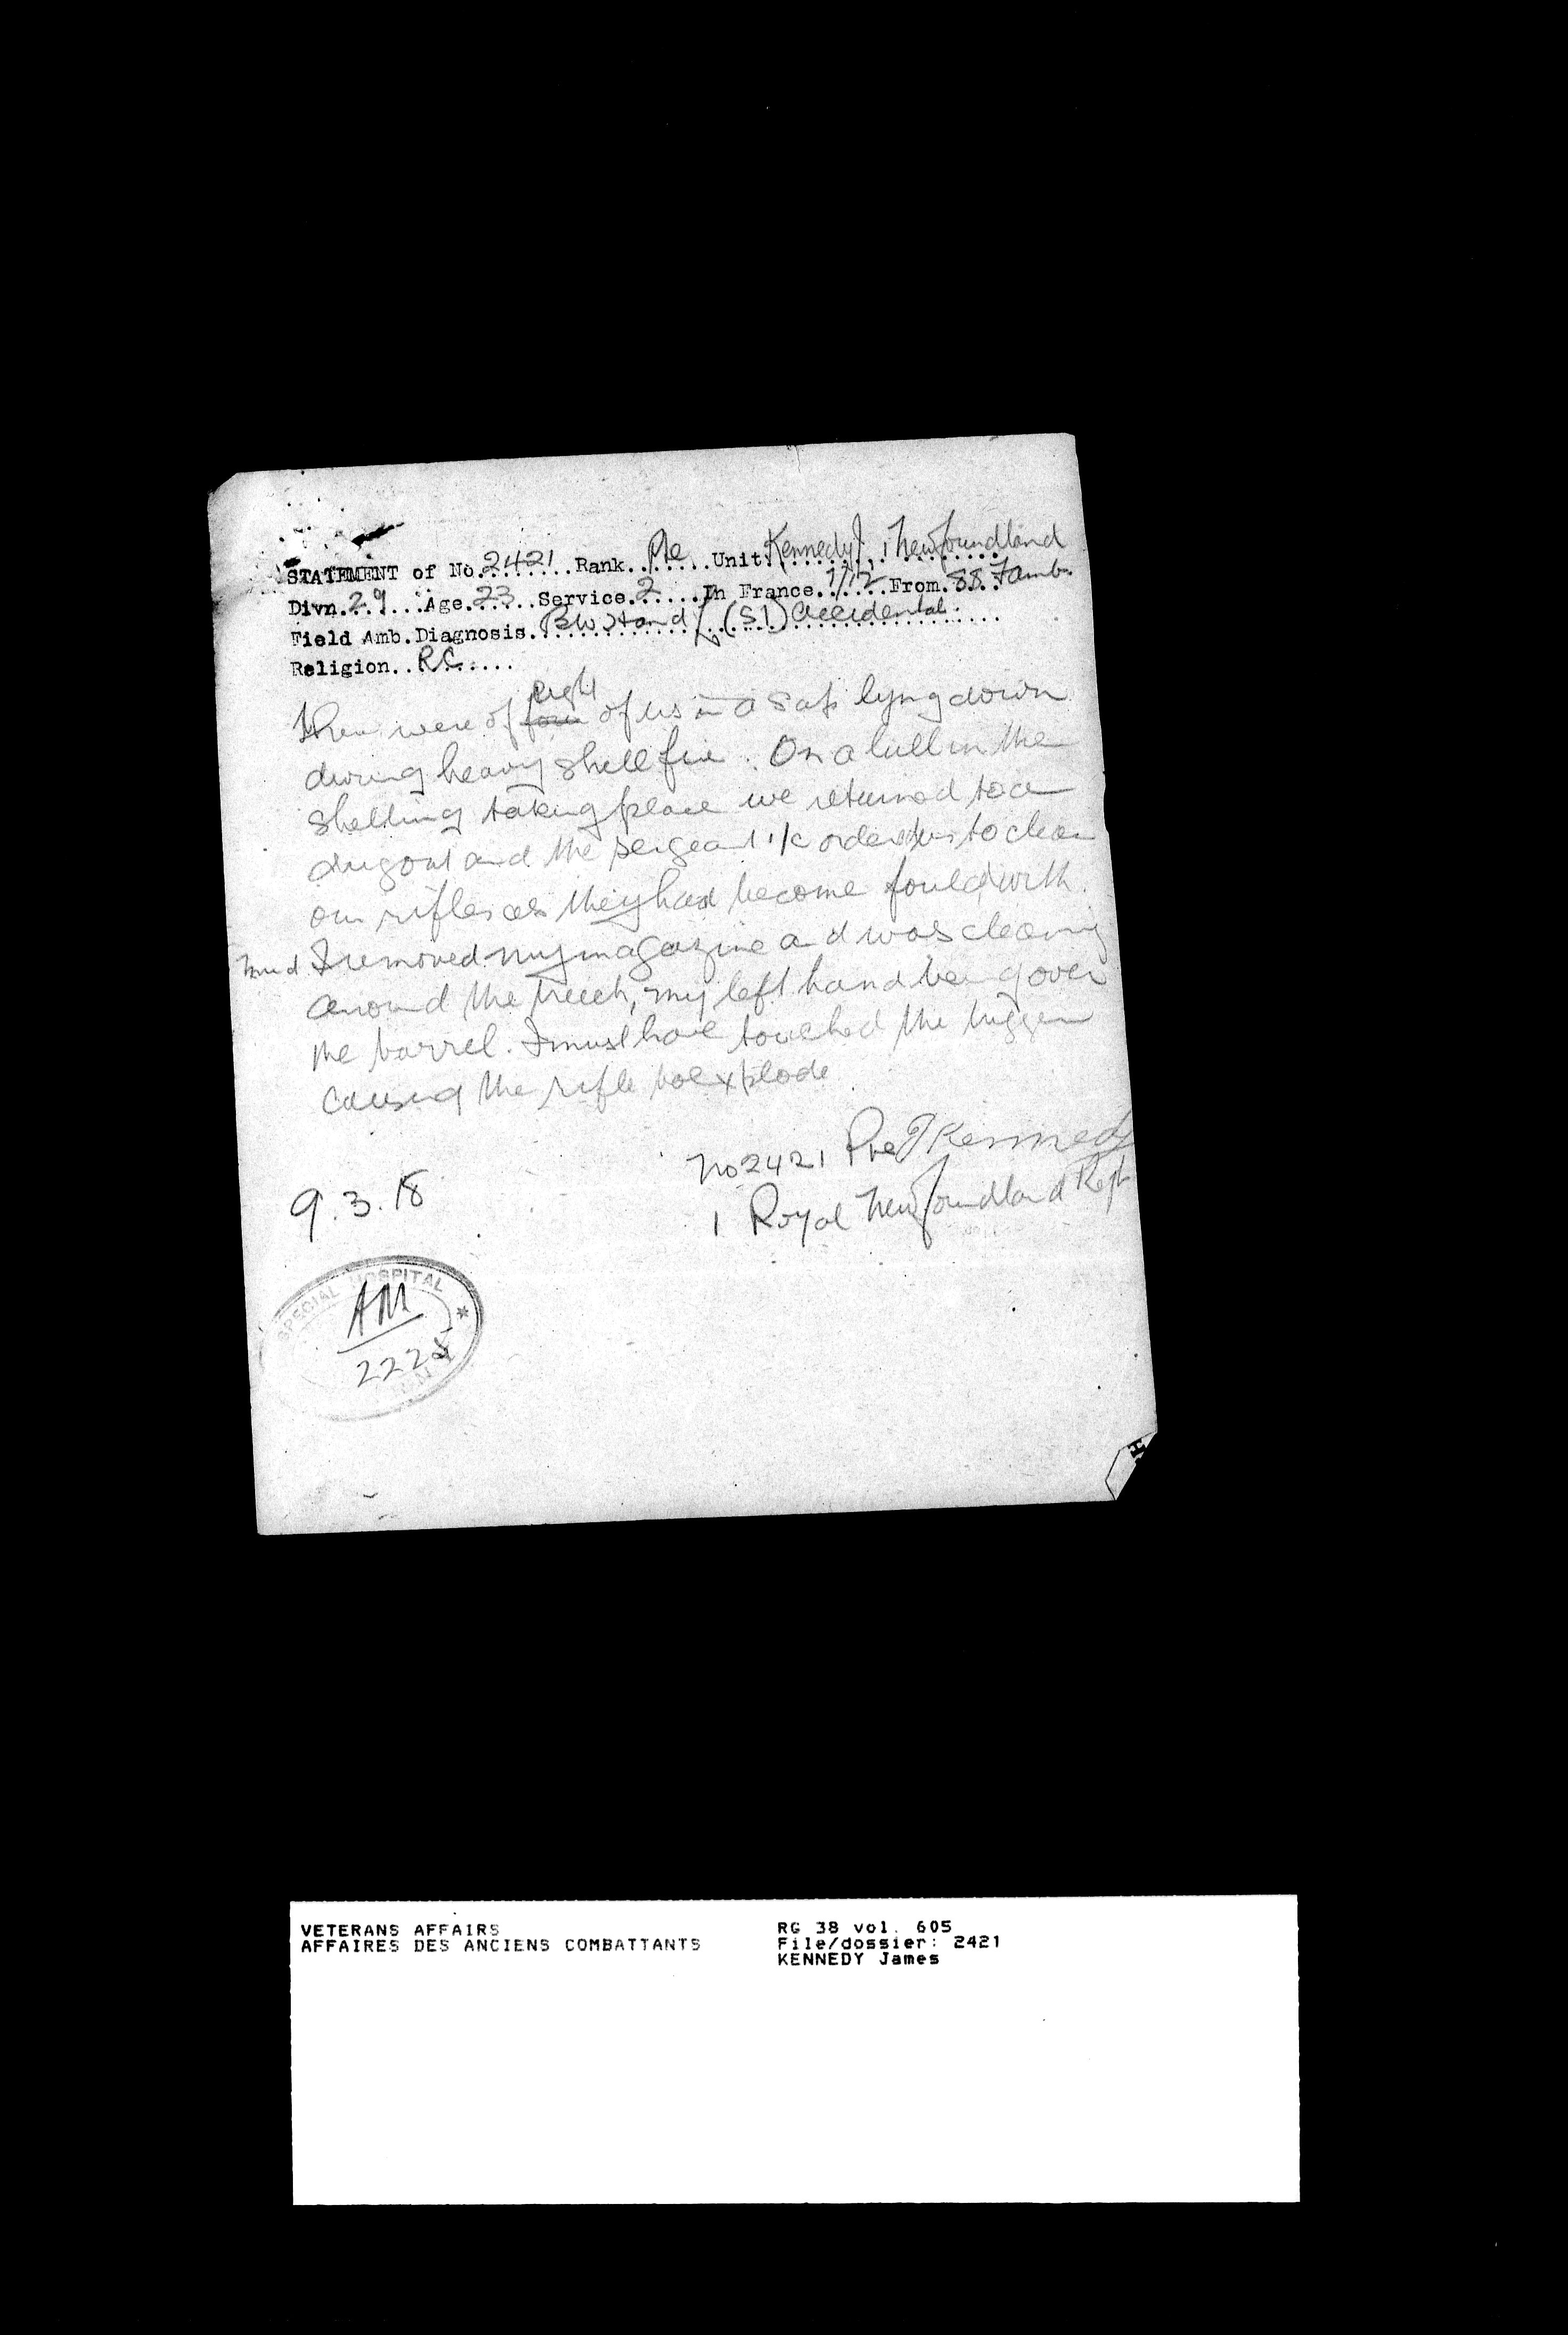 STATEMENT of No. 2421 Rank. Pte Unit. Kennedy J. 1 Newfoundland
Divn. 29 Age. 23 Service. 2 In France. 1/12 From. 88 F amb.
Field Amb. Diagnosis. BW Hand L (SI) Accidental.
Religion. RC
eight
There were of four of us in a sap lying down
during heavy shell fire. On a lull in the
shelling taking place we returned to a
dugout and the sergeant i/c ordered us to clean
our rifles as they had become fouled with
mud I removed my magazine and was cleaning
around the breech, my left hand being over
the barrel. I must have touched the trigger
causing the rifle to explode
No 2421 Pte J Kennedy
9.3.18
1 Royal Newfoundland Regt
SPECIAL HOSPITAL *
AM
222
H
VETERANS AFFAIRS
AFFAIRES DES ANCIENS COMBATTANTS
RG 38 vol. 605
File/dossier: 2421
KENNEDY James